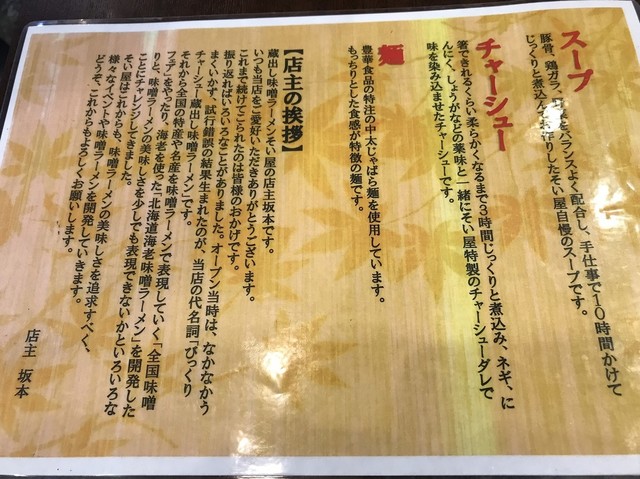 スープ
豚骨、鶏ガラ、野菜をバランスよく配合し、手仕事で10時間かけて
じっくりと煮込んでお作りしたそい屋自慢のスープです。
チャーシュー
箸できれるくらい柔らかくなるまで3時間じっくりと煮込み、ネギ、に
んにく、しょうがなどの薬味と一緒にそい屋特製のチャーシューダレで
味を染み込ませたチャーシューです。
麺
豊華食品の特注の中太じゃばら麺を使用しています。
もっちりとした食感が特徴の麺です。
【店主の挨拶】
蔵出し味噌ラーメンそい屋の店主坂本です。
いつも当店をご愛好いただきありがとうございます。
これまで続けてこられたのは皆様のおかげです。
振り返ればいろいろなことがありました。オープン当時は、なかなかう
まくいかず、試行錯誤の結果生まれたのが、当店の代名詞「びっくり
チャーシュー蔵出し味噌ラーメン」です。
それから全国の特産や名産を味噌ラーメンで表現していく「全国味噌
フェア」をやったり、海老を使った「北海道海老味噌ラーメン」を開発した
りと、味噌ラーメンの美味しさを少しでも表現できないかといろいろな
ことにチャレンジしてきました。
そい屋はこれからも、味噌ラーメンの美味しさを追求すべく、
様々なイベントや味噌ラーメンを開発していきます。
どうぞ、これからもよろしくお願いします。
店主 坂本